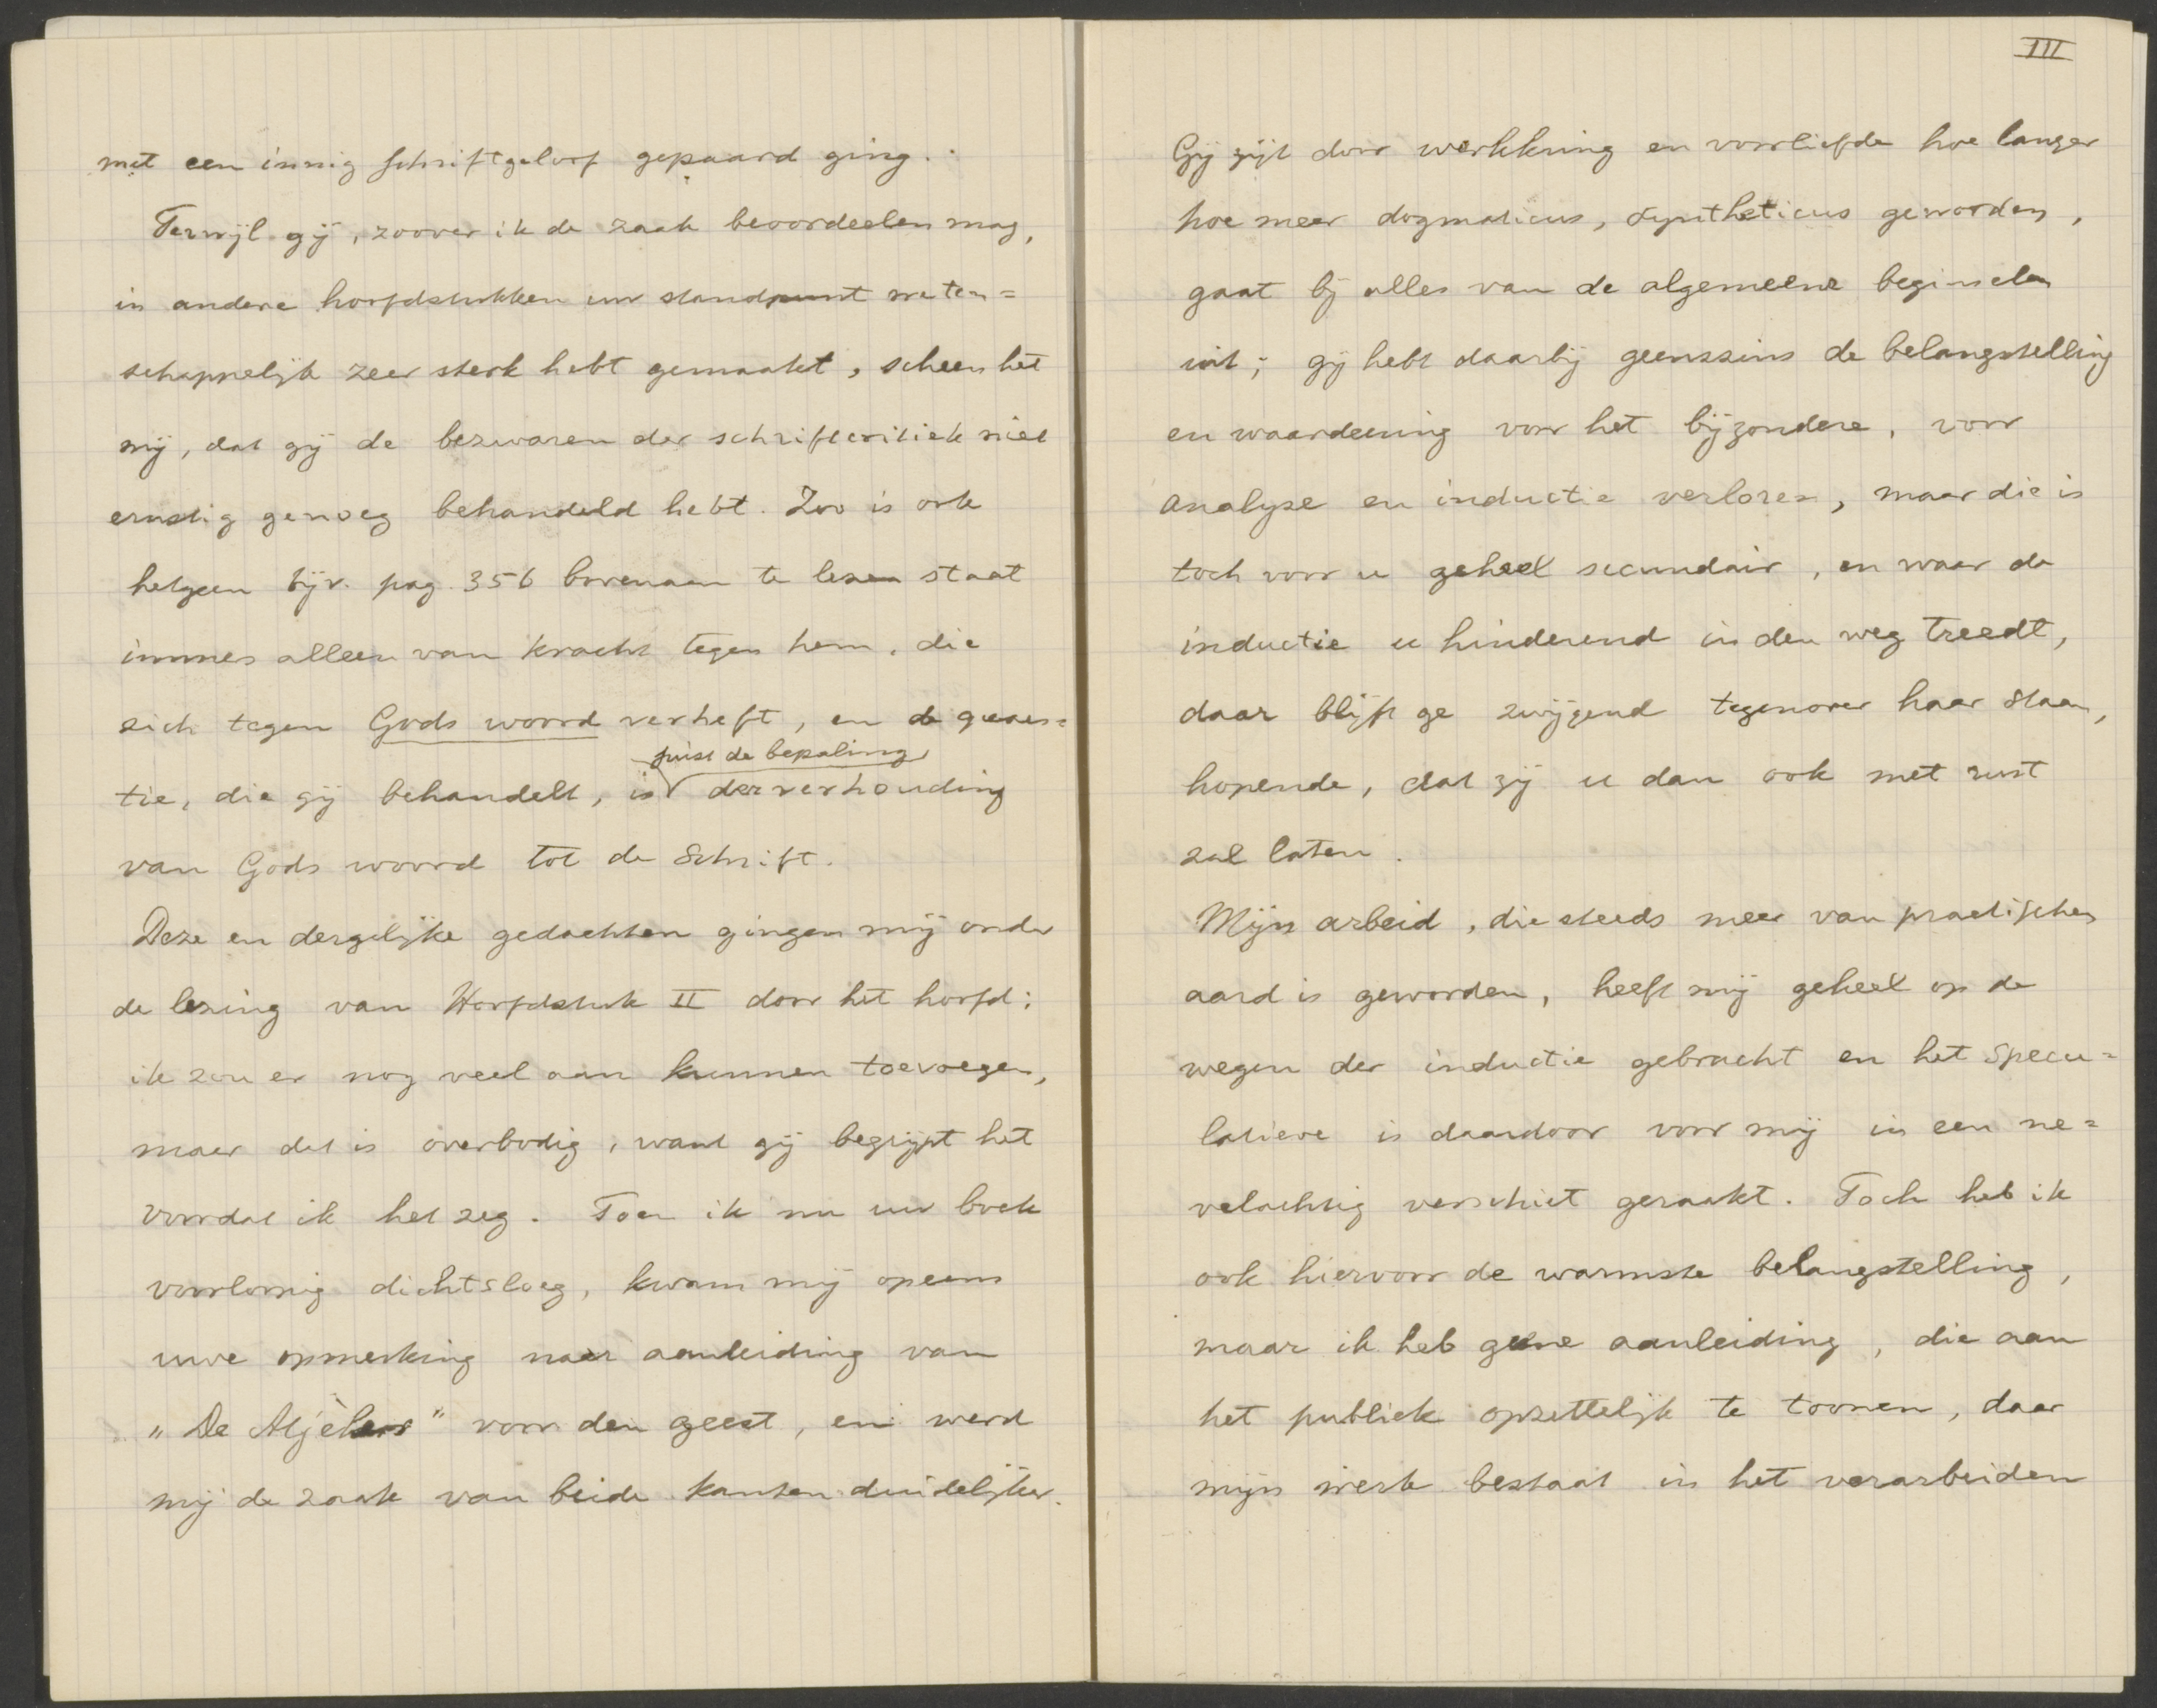 met een innig schriftgeloof gepaard ging.
Terwijl gij, zoover ik de zaak beoordeelen mag,
in andere hoofdstukken uw standpunt weten=
schappelijk zeer sterk hebt gemaakt, scheen het
mij, dat gij de bezwaren der schriftcritiek niet
ernstig genoeg behandeld hebt. Zoo is ook
hetgeen bijv. pag. 356 bovenaan te lezen staat
immers alleen van kracht tegen hem, die
zich tegen Gods woord verheft, en de quaes=
juist de bepaling
tie, die gij behandelt, is der verhouding
van Gods woord tot de Schrift.
Deze en dergelijke gedachten gingen mij onder
de lezing van Hoofdstuk II door het hoofd;
ik zou er nog veel aan kunnen toevoegen,
maar dat is overbodig, want gij begrijpt het
voordat ik het zeg. Toen ik nu uw boek
voorloopig dichtsloeg, kwam mij opeens
uwe opmerking naar aanleiding van
„De Atjèhers" voor den geest, en werd
mij de zaak van beide kanten duidelijker.
III
Gij zijt door werkkring en voorliefde hoe langer
hoe meer dogmaticus, syntheticus geworden,
gaat bij alles van de algemeene beginselen
uit; gij hebt daarbij geenszins de belangstelling
en waardeering voor het bijzondere, voor
analyse en inductie verloren, maar die is
toch voor u geheel secundair, en waar de
inductie u hinderend in den weg treedt,
daar blijft ge zwijgend tegenover haar staan,
hopende, dat zij u dan ook met rust
zal laten.
Mijn arbeid, die steeds meer van practischen
aard is geworden, heeft mij geheel op de
wegen der inductie gebracht en het specu=
latieve is daardoor voor mij in een ne=
velachtig verschiet geraakt. Toch heb ik
ook hiervoor de warmste belangstelling,
maar ik heb geene aanleiding, die aan
het publiek opzettelijk te toonen, daar
mijn werk bestaat in het verarbeiden